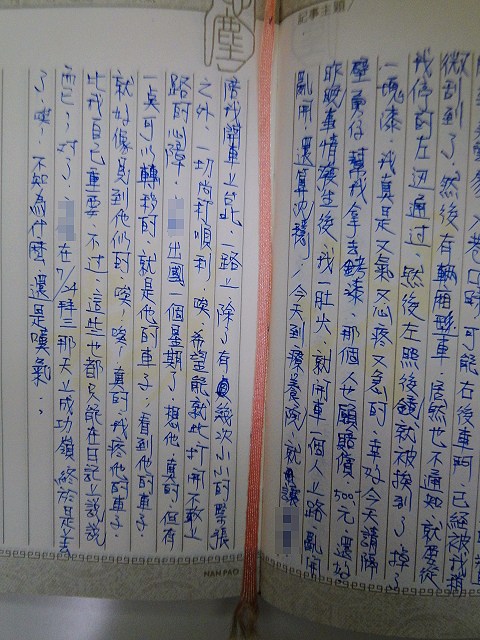 記事主題
微刮到了，然後有輛賤車，居然也不通知就要從
我停的左迴通過，然後左照後鏡就被挨到了，掉了
一塊漆，我真是又氣又心疼又急的，幸好今天請
幫我拿去烤漆，那個人也願賠償，500元還好
昨晚事情發生後，我一肚火，就開車一個人上路亂開
亂開，還算沈穩，今天到療養院，就讓
陪我開車上台北，一路上除了有幾次小小的緊張
之外，一切尚稱順利，唉，希望能就此打開不敢上
路的心障，出國一個星期了，想他，真的，但有
一点可以轉移的，就是他的車子，看到他的車子，
就好像見到他似的，唉，唉，真的，我疼他的車子，
比我自己重要，不过，這些也都只能在日記上說說
而已，对了，在7/24拜三那天上成功嶺，終於是走
了，唉，不知為什麼，還是嘆氣，，
HAN PAO